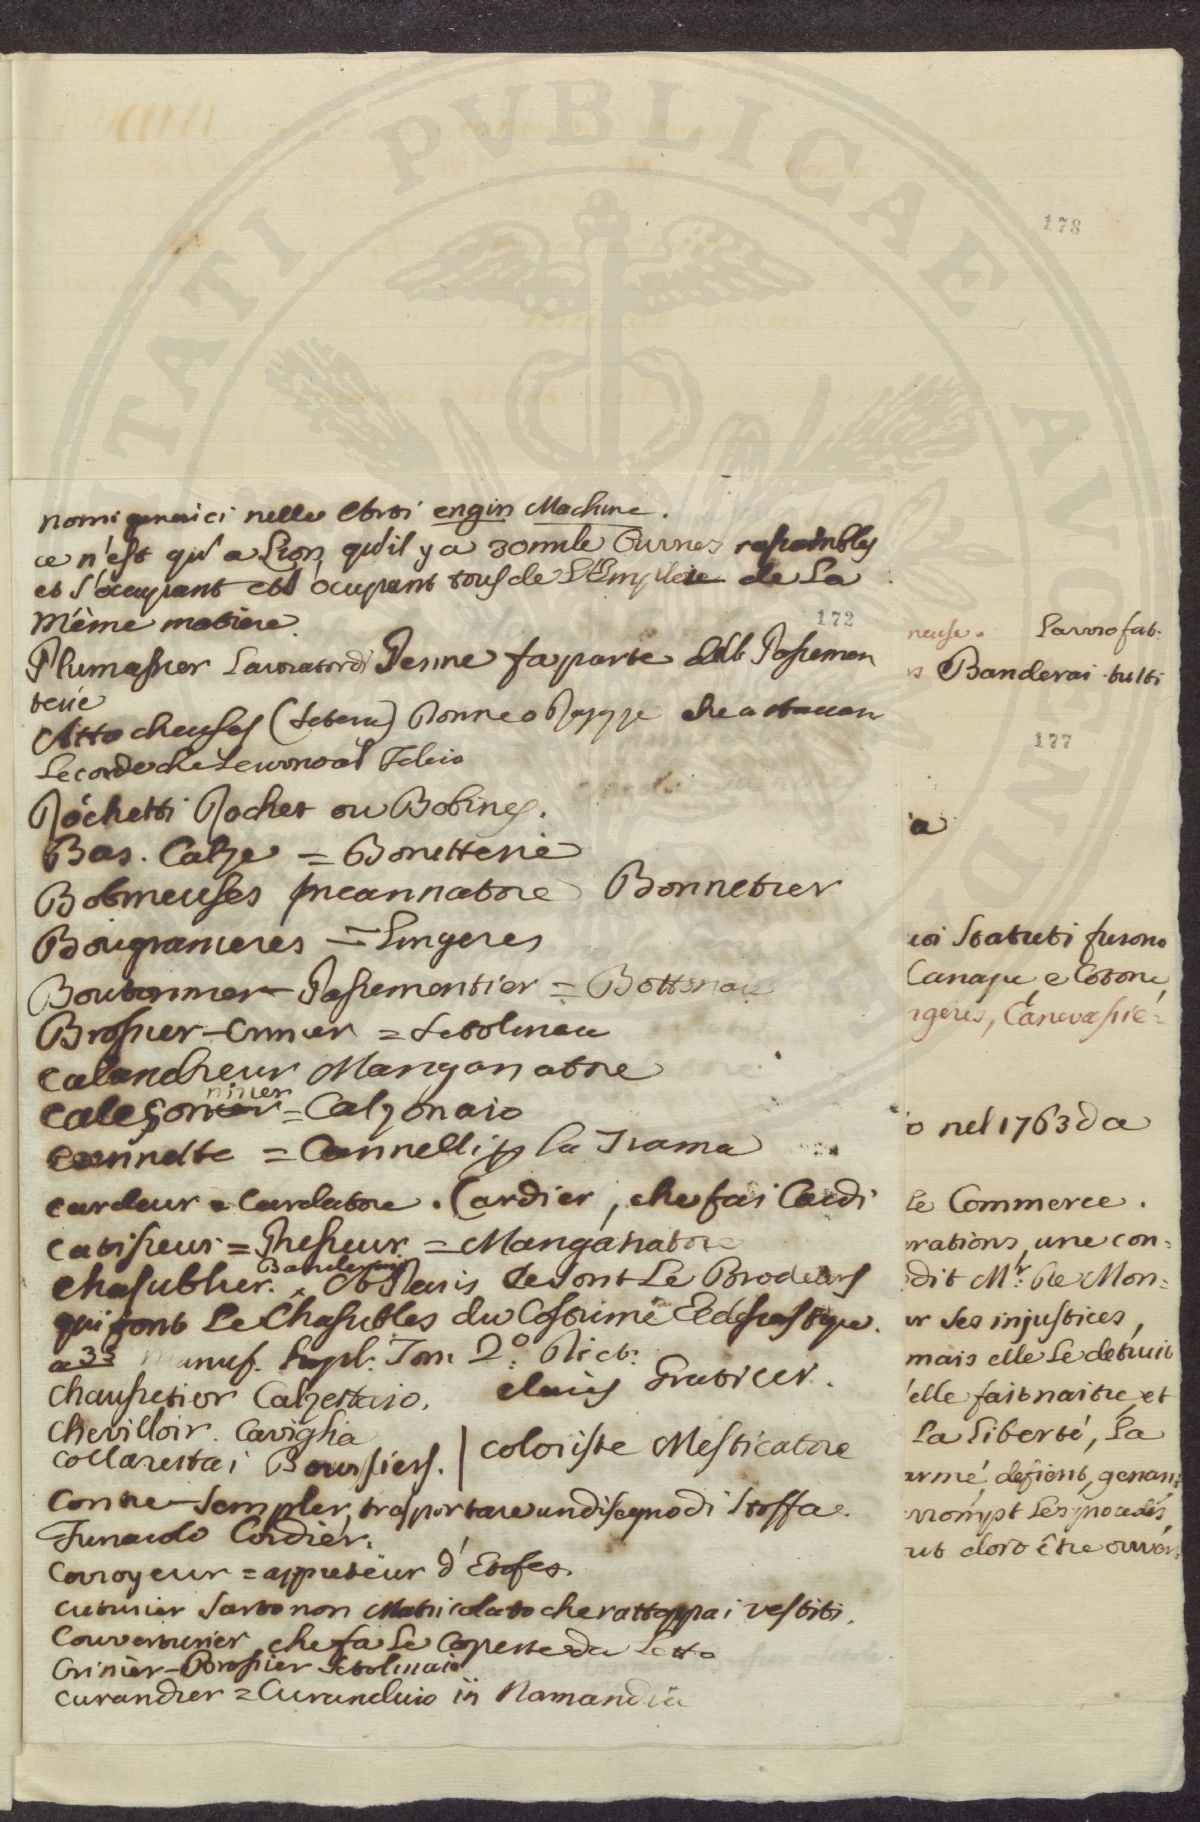 PUBLICAE
178
nomi generici nelle Arti engin Machine.
ce n'est qu'a Lion, qu'il ya 30 mille
et s'ocupant et s'ocupant tous de L'Emploie de La
Même matiere.
172
Plumassier Lavorator di Penne fa parte dell Passemen
terie
Attacheuses Donne o Ragazze che attaccan
Le corde che Levorono al Telaio
Rochetti Rochet ou Bobines.
Bas. Calze = Bonetterie
Bobineuses Incannatore Bonnetier
Bougranieres = Lingeres
Boutonnier - Passementier = Bottonaio
Brossier - Crinier = Setolinaio
Calandreur Manganatore
Caleçonnier = Calzonaio
Cannette = Cannelli p la Trama
Cardeur = Cardatore. Cardier, che fa i Cardi
Catisseur = Presseur = Manganatore
Banderaio
Chasublier. Paris Ce sont Le Brodeurs
qui font Le Chasubles du Costume Eclesiastique.
a 33 Manuf. Supl. Tom 2º. Dict:
Chaussetier Calzettaio.
Chevilloir. Caviglia
Collarettai Boursiers. | coloriste Mesticatore
Contre-Sempler, trasportare un disegno di Stoffa.
Funaiolo Cordier.
Corroyeur = appreteur d'Etofes.
Cuturier Sarto non Matricolato che rattoppa i vestiti.
Couverturier che fa Le Coperte da Letto
Crinier - Brossier Setolinaio
Curandier = Curandaio in Normandia
neuse. Lavoro fat:
Banderai tutti
177
a
Statuti furono
Canapa, e Cotone,
ngeres, Canevassie=
o nel 1763 da
Le Commerce.
erations, une con=
dit Mr. De Mon=
ses injustices,
mais elle Le detruit
'elle fait naitre, et
La Liberté, La
armé,
rrompt Les
ut doit être ouver=